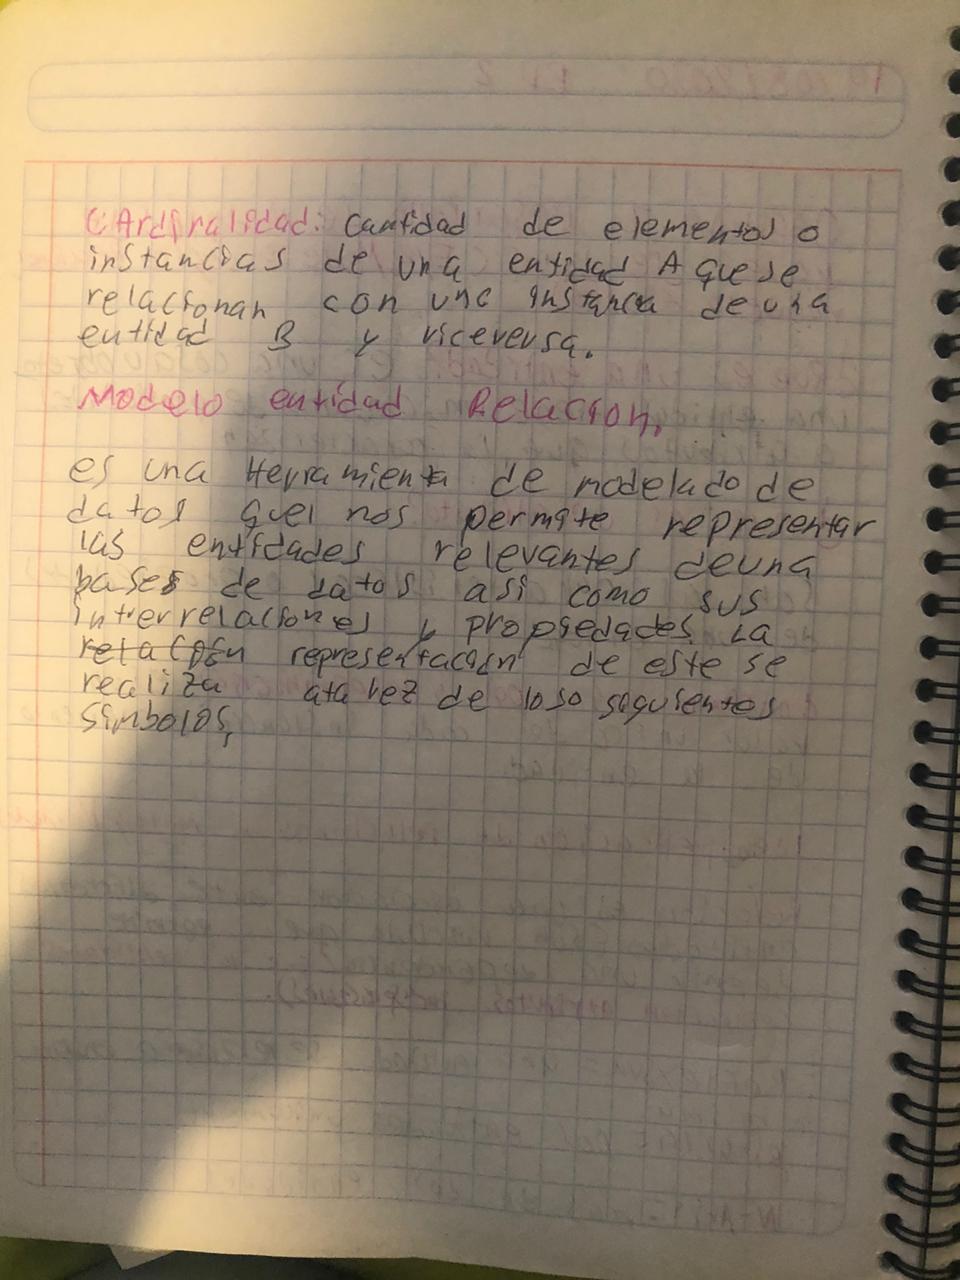 CArdinalidad: cantidad de elementos o
instancias de una entidad A que se
relacionan con una instancia de una
entidad B y viceversa.
Modelo entidad Relacion.
es una Herramienta de modelado de
datos que nos permite representar
las entidades relevantes de una
bases de datos asi como sus
interrelaciones y propiedades La
relación representación de este se
realiza atavez de loso siguientes
simbolos,